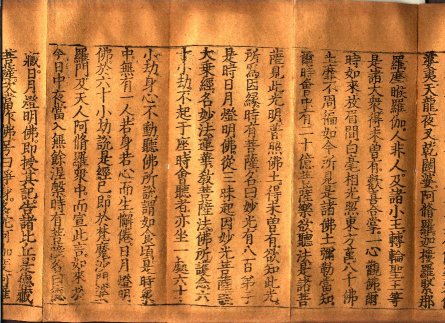 婆夷天龍夜叉乾闥婆阿脩羅迦樓羅緊那
羅摩睺羅伽人非人及諸小王轉輪聖王等
是諸大衆得未曾有歡喜合掌一心觀佛爾
時如來放眉間白毫相光照東方萬八千佛
土靡不周徧如今所見是諸佛土彌勒當知
爾時會中有二十億菩薩樂欲聽法是諸菩
薩見此光明普照佛土得未曾有欲知此光
所爲因緣時有菩薩名曰妙光有八百弟子
是時日月燈明佛從三昧起因妙光菩薩說
大乗經名妙法蓮華教菩薩法佛所護念六
十小劫不起于座時會聽者亦坐一處六十
小劫身心不動聽佛所說謂如食頃是時衆
中無有一人若身若心而生懈倦日月燈明
佛於六十小劫說是經已即於梵魔沙門婆
羅門及天人阿脩羅衆中而宣此言如來於
今日中夜當入無餘涅槃時有菩薩名曰德
藏日月燈明佛即授其記告諸比丘是德藏
菩薩次當作佛號曰淨身多陀阿伽度